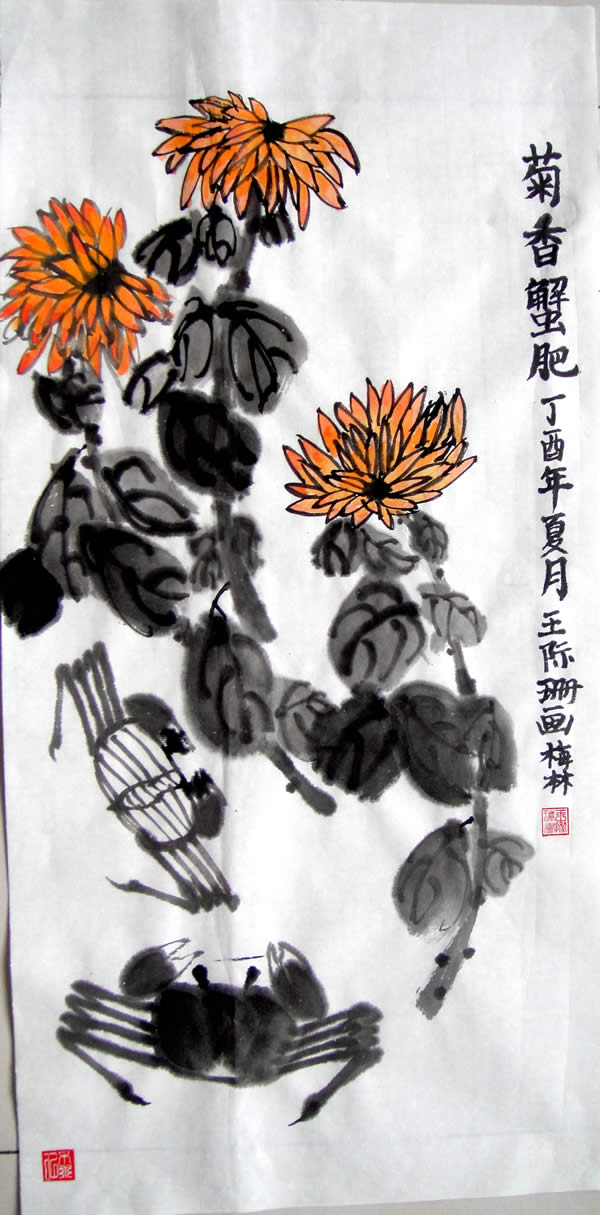 菊香蟹肥丁酉年夏月王际珊画梅林